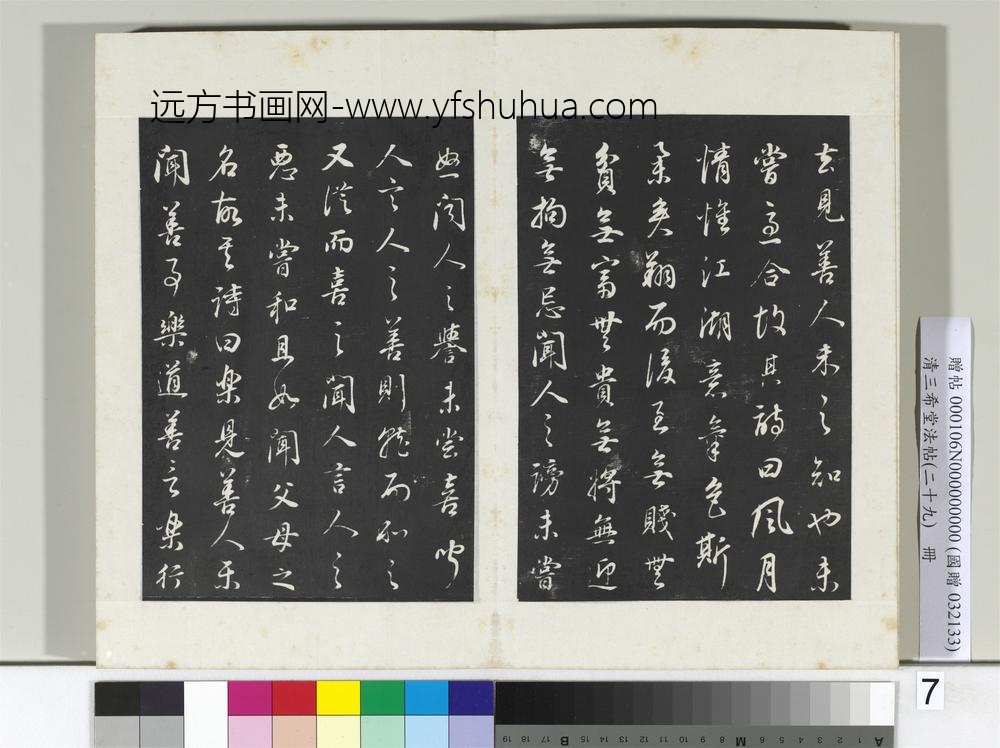 远方书画网-www.yfshuhua.com
去見善人未之知也未
嘗急合故其詩曰風月
情懷江湖意氣色斯
舉矣翔而後至無賤無
貧無富無貴無將無迎
無拘無忌聞人之謗未嘗
怒聞人之譽未嘗喜聞
人言人之善則就而和之
又從而喜之聞人言人之
惡未嘗和且如聞父母之
名故其詩曰樂見善人樂
聞善事樂道善言樂行
贈帖 000106N000000000 (國贈 032133)
清三希堂法帖(二十九) 冊
7